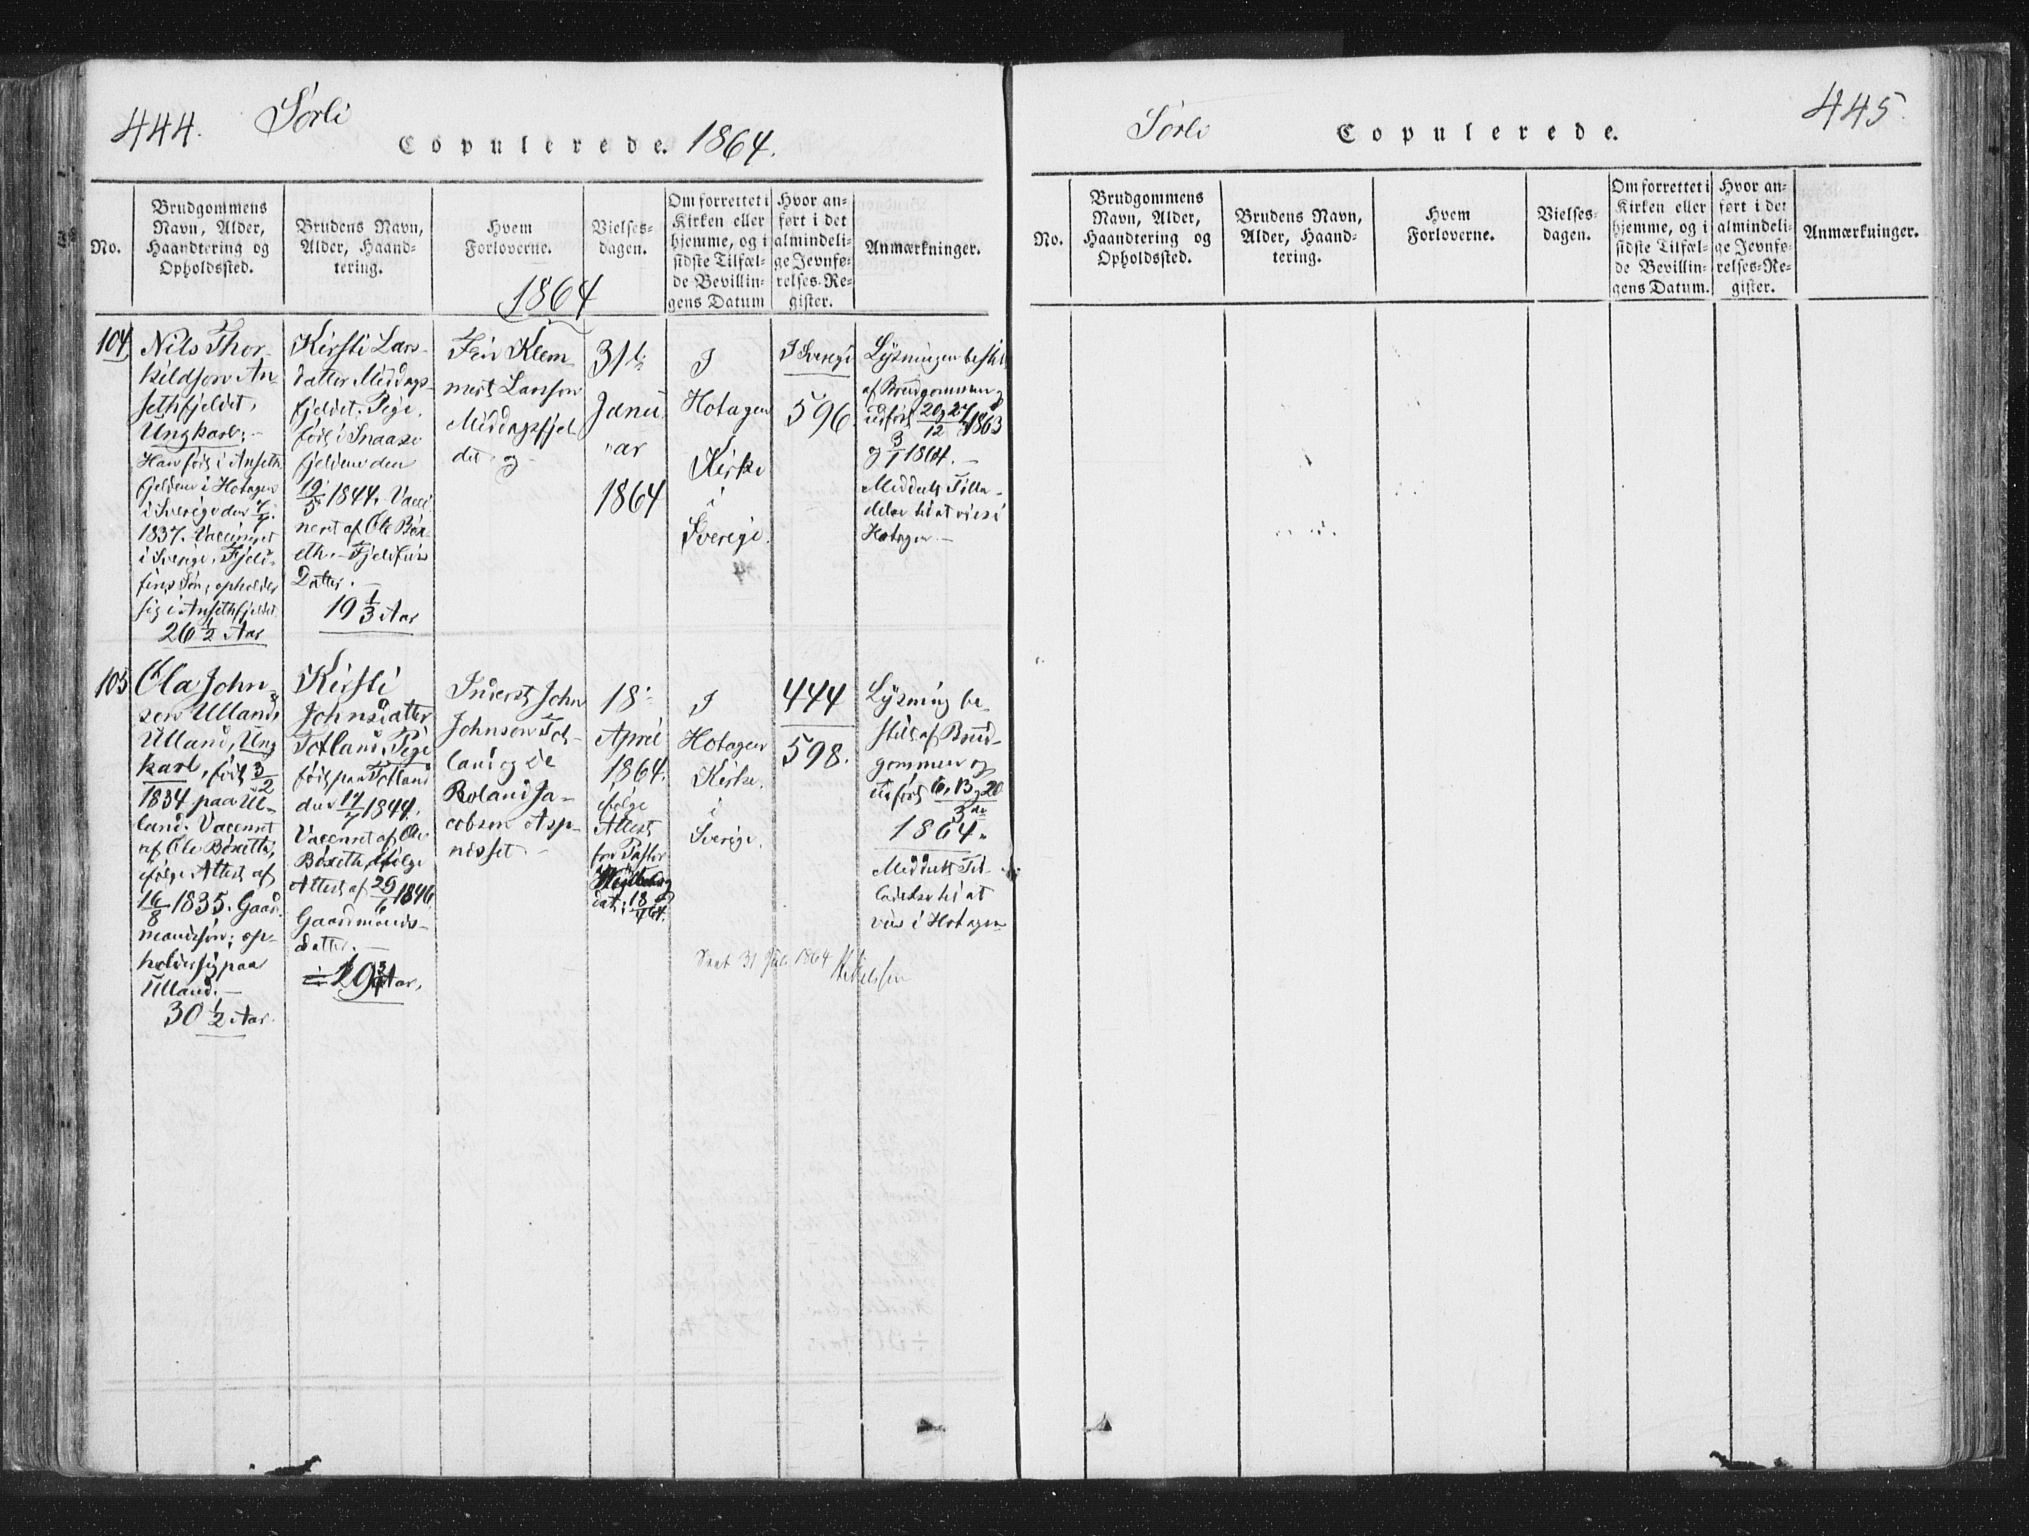 444.
Sørli
Copulerede. 1864.
No.
Brudgommens
Navn, Alder,
Haandtering og
Opholdssted.
Brudens Navn,
Alder, Haand-
tering.
Hvem
Forloverne.
Vielses-
dagen.
Om forrettet i
Kirken eller
hjemme, og i
sidste Tilfæl-
de Bevillin-
gens Datum
Hvor an-
ført i det
almindeli-
ge Jevnfø-
relses-Re-
gister.
Anmærkninger.
1864
104
Nils Thor-
kildson An-
sethfjeldet,
Ungkarl;
Han føds i Anseth
fjeldene i Hotagen
i Sverige den
1837. Vaccineret
i Sverige, Fjeld-
fins Søn; opholder
sig i Ansethfjeldet.
26 1/2 Aar
Kirsti Lars-
datter Middags-
fjeldet, Pige,
føds i Snaase
fjeldene den
19/5 1844. Vacci
neret af Ole Bôx-
eth. Fjeldfins
Datter.
19 1/3 Aar
Fin Klem-
met Larsson
Middagsfjel
det og
31te
Janu
ar
1864
I
Hotagen
Kirke
i
Sverige.
I Sverige
596.
Lysningen bestilt
af Brudgommen og
udført 20 og 27/12 1863
og 3/1 1864.
Meddelt Tilla-
delse til at vies i
Hotagen.
105
Ola John-
son Ulland,
Ulland, Ung
karl, føds 3/2
1834 paa Ul-
land. Vaccinert
af Ole Bôxeth,
ifølge Attest af
16/8 1835. Gaard
mandssøn; op-
holder sig paa
Ulland.
30 1/2 Aar.
Kirsti
Johnsdatter
Totland, Pige
føds paa Totland
den 14/7 1844.
Vaccineret af Ole
Bôxeth, ifølge
Attest af 29/6 1846.
Gaardmands-
datter.
÷ 19 3/4 Aar,
Inderst John
Johnson Tot-
land og de
Roland Ja-
cobsen Asp-
nisset
18
April
1864.
ifølge
Attest
fra Pastor
dat. 18/4 64.
I
Hotagen
Kirke.
i
Sverige.
444
598.
Lysning be-
stilt af Brud-
gommen og
udført 6, 13 og 20/3
1864.
Meddelt Til-
ladelse til at
vies i Hotagen
Seet 31 Juli 1864
Sørli
Copulerede.
445.
No.
Brudgommens
Navn, Alder,
Haandtering og
Opholdssted.
Brudens Navn,
Alder, Haand-
tering.
Hvem
Forloverne.
Vielses-
dagen.
Om forrettet i
Kirken eller
hjemme, og i
sidste Tilfæl-
de Bevillin-
gens Datum.
Hvor an-
ført i det
almindeli-
ge Jevnfø-
relses-Re-
gister.
Anmærkninger.